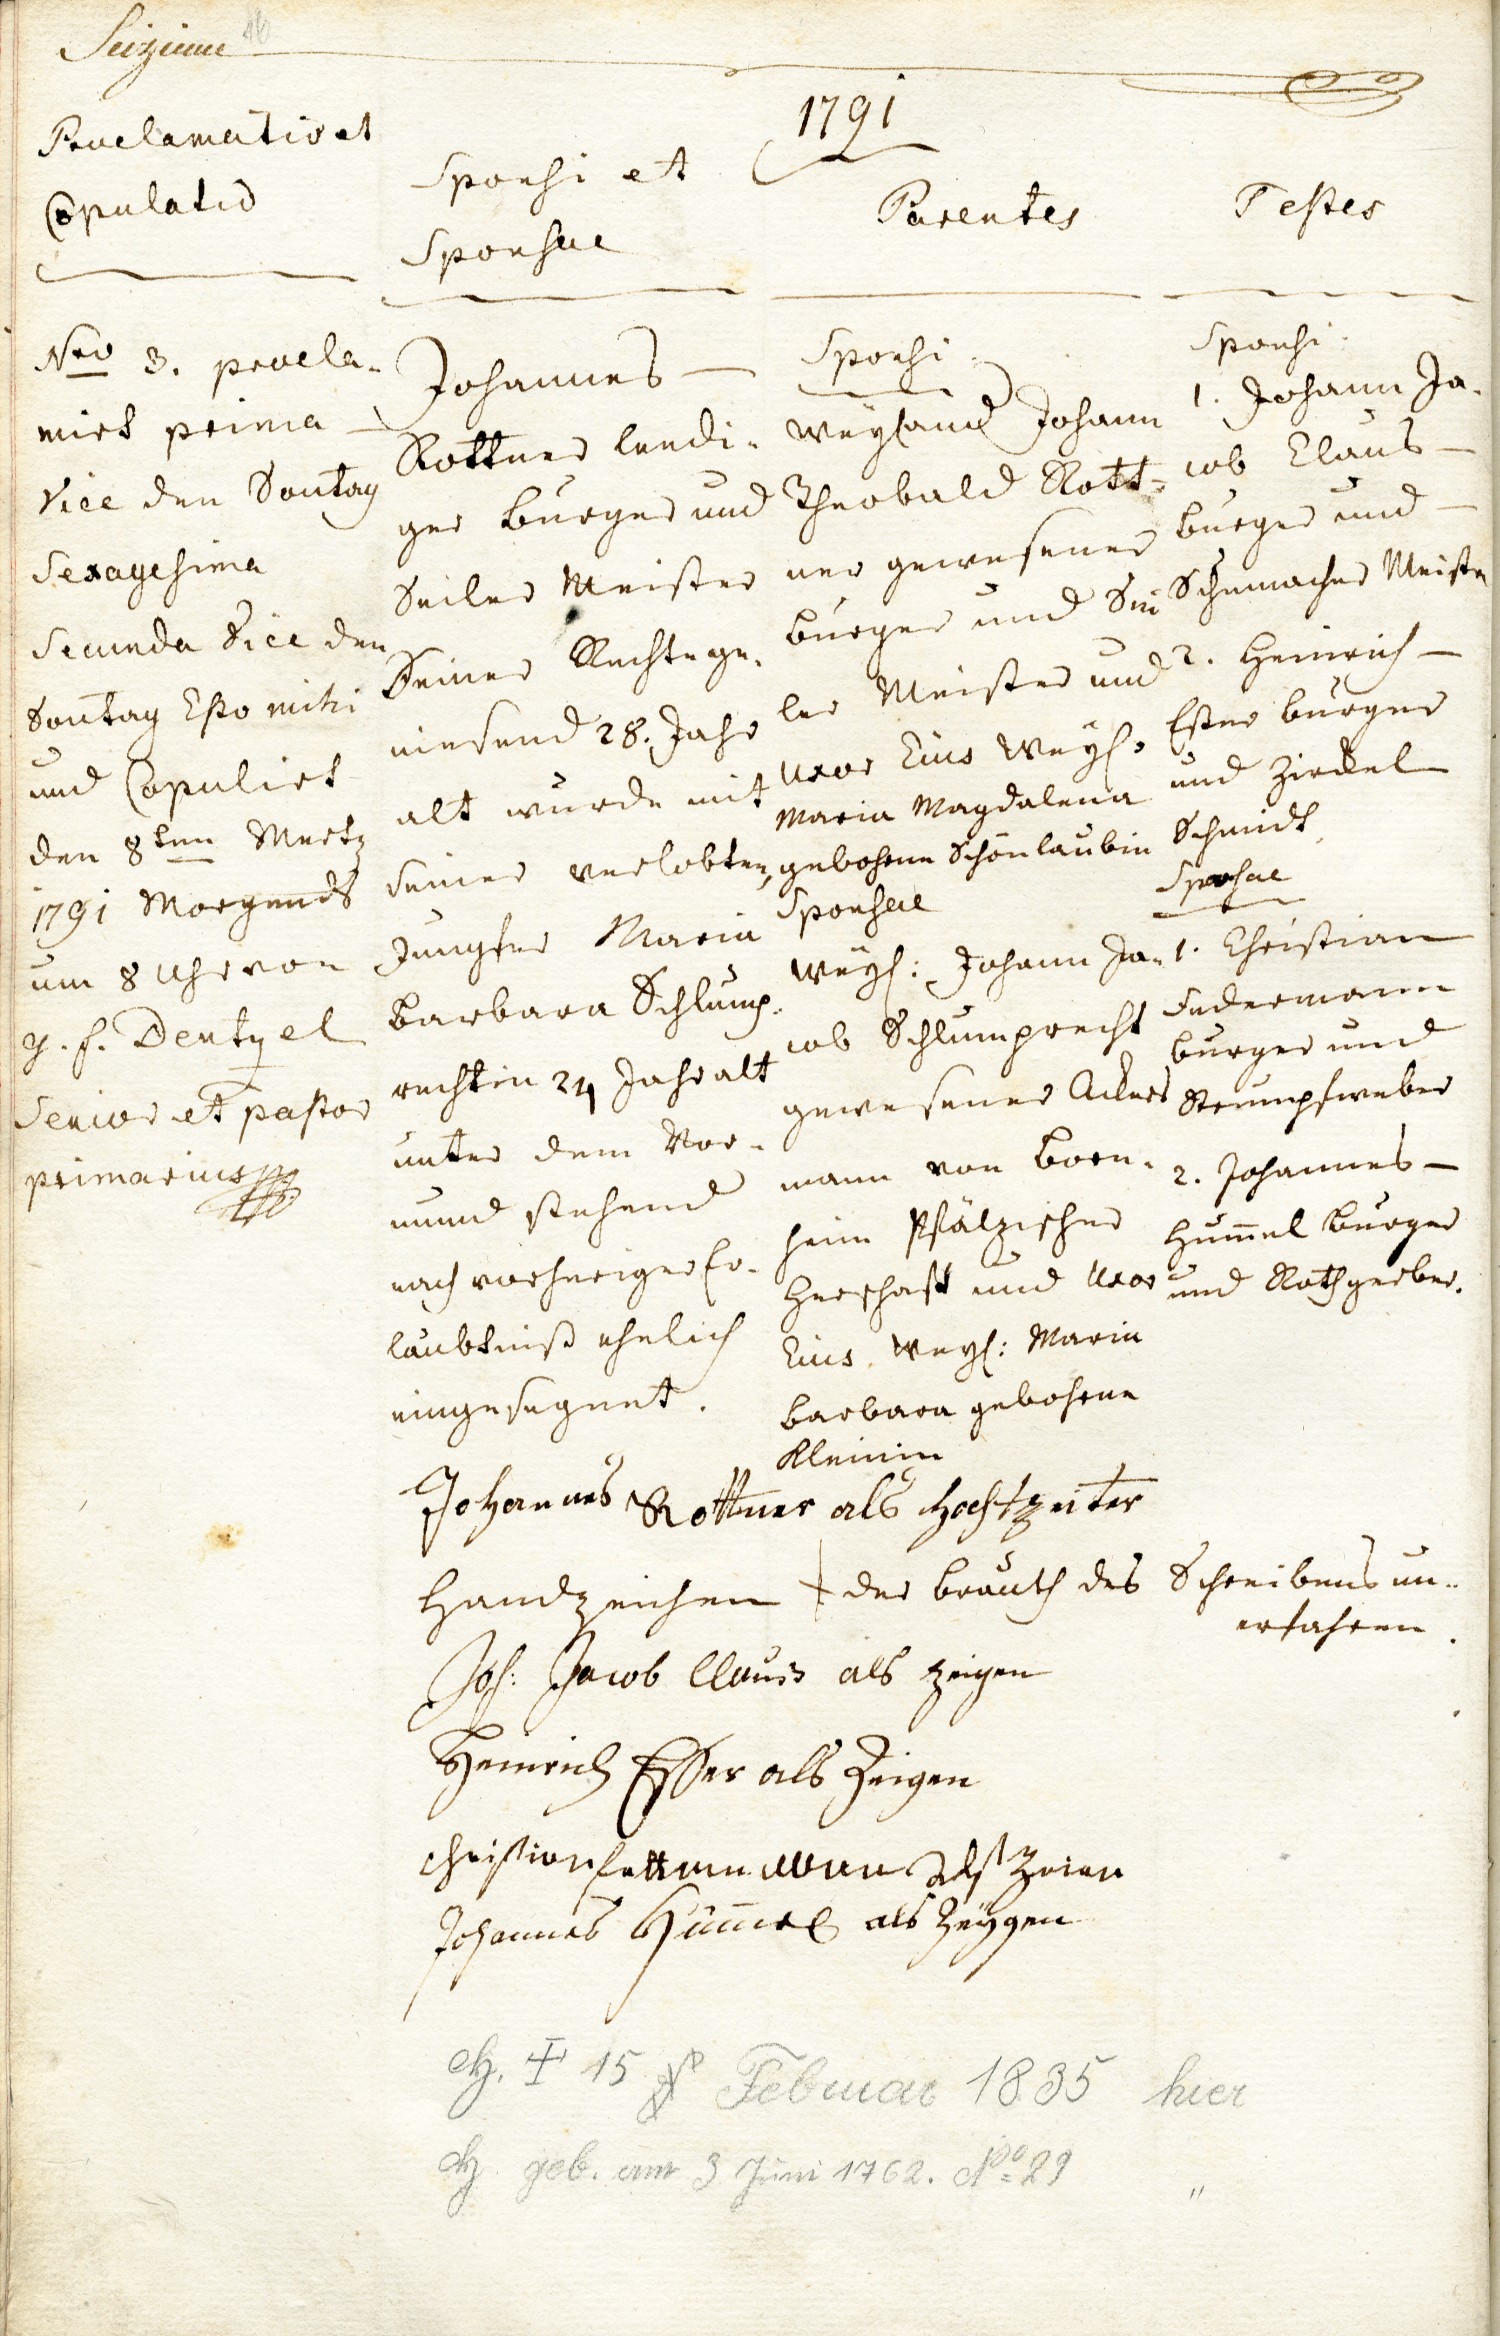 Seizieme 16
1791
Proclamatio et
Copulatio
Sponsi et
Sponsae
Parentes
Testes
Nro 3. procla-
mirt prima
Vice den Sontag
Sexagesima
Secunda Vice den
Sontag Esto mihi
und Copulirt
den 8ten Mertz
1791 Morgends
um 8 Uhr von
G. F. Dentzel
Senior et pastor
primarius
Johannes —
Rottner leedi-
ger burger und
Seiler Meister
Seiner Rechte ge-
niesend 28. Jahr
alt wurde mit
seiner verlobten,
Jungfer Maria
Barbara Schlump-
rechtin 24 Jahr alt
unter dem Vor-
mund stehend
nach vorheriger Er-
laubtniß ehelich
eingesegnet.
Sponsi
Weyland Johann
Theobald Rott-
ner gewesener
burger und Sei
ler Meister und
Uxor Eius Weyl.
Maria Magdalena
gebohrne Schönlaubin
Sponsae
Weyl: Johann Ja-
cob Schlumprecht
gewesener Ackers
mann von Born-
heim Pfälzischer
Herschaft und Uxor
Eius Weyl: Maria
Barbara gebohrne
Kleinin
Sponsi:
1. Johann Ja-
cob Claus —
burger und —
Schumacher Meister
2. Heinrich —
Esser burger
und Zirckel
Schmidt
Sponsae
1. Christian
Federmann
burger und
Strumpfweber
2. Johannes —
Hum̄el burger
und Rothgerber.
Johannes Rottner als Hochtzeiter
Handzeichen + der brauth des Schreibens un-
erfahren.
Joh: Jacob Clauss als zeigen
Heinrich Esser als Zeigen
Christian als Zeien
Johannes Hum̄el als Zeygen
15 Februar 1835 hier
geb. am 3 Juni 1762. No 29 "